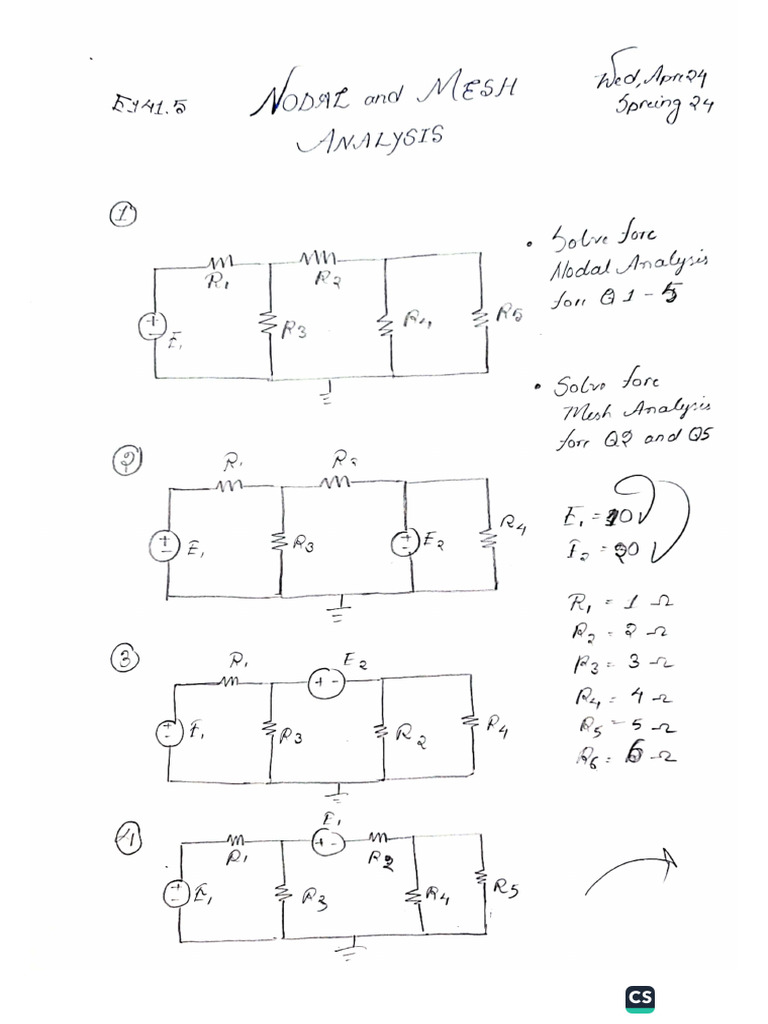 NODAL and MESH
ANALYSIS
Spreing 24
①
R₁
R₂
E₁
R₃
R₄
R₅
• Solve fore
Nodal Analysis
for Q1-5
• Solve fore
Mesh Analysis
fore Q2 and Q5
②
R₁
R₂
E₁
R₃
E₂
R₄
E₁ = 10V
E₂ = 20V
R₁ = 1 Ω
R₂ = 2 Ω
R₃ = 3 Ω
R₄ = 4 Ω
R₅ = 5 Ω
R₆ = 6 Ω
③
R₁
E₂
E₁
R₃
R₂
R₄
④
R₁
E₁
R₂
E₁
R₃
R₄
R₅
CS